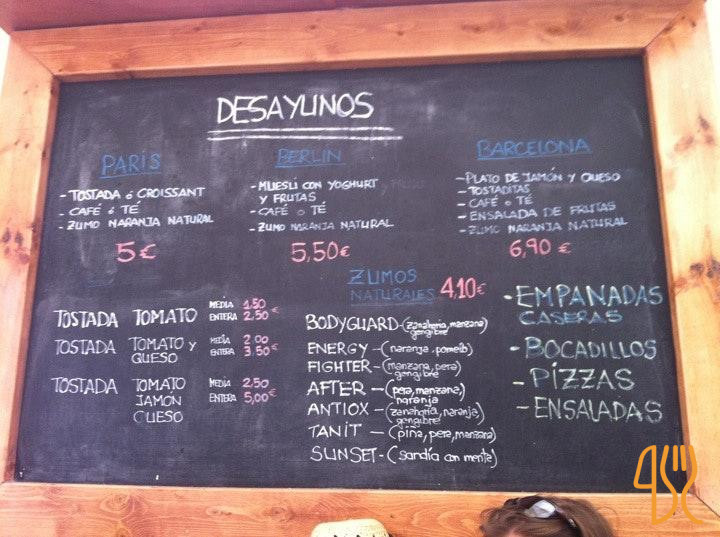 DESAYUNOS
PARIS
- TOSTADA ó CROISSANT
- CAFÉ ó TÉ
- ZUMO NARANJA NATURAL
5€
BERLIN
- MUESLI CON YOGHURT
Y FRUTAS
- CAFÉ O TÉ
- ZUMO NARANJA NATURAL
5,50€
BARCELONA
- PLATO DE JAMÓN Y QUESO
- TOSTADITAS
- CAFÉ O TÉ
- ENSALADA DE FRUTAS
- ZUMO NARANJA NATURAL
6,90 €
TOSTADA TOMATO MEDIA 1.50
ENTERA 2,50 €
TOSTADA TOMATO Y MEDIA 2.00
QUESO ENTERA 3.50 €
TOSTADA TOMATO MEDIA 2,50
JAMÓN ENTERA 5,00€
QUESO
ZUMOS
NATURALES 4,10€
BODYGUARD-(zanahoria, manzana)
gengibre
ENERGY - (naranja, pomelo)
FIGHTER - (manzana, pera)
gengibre
AFTER - (pera, manzana,)
naranja
ANTIOX - (zanahoria, naranja)
gengibre
TANIT - (piña, pera, manzana)
SUNSET - (sandía con menta)
- EMPANADAS
CASERAS
- BOCADILLOS
- PIZZAS
- ENSALADAS